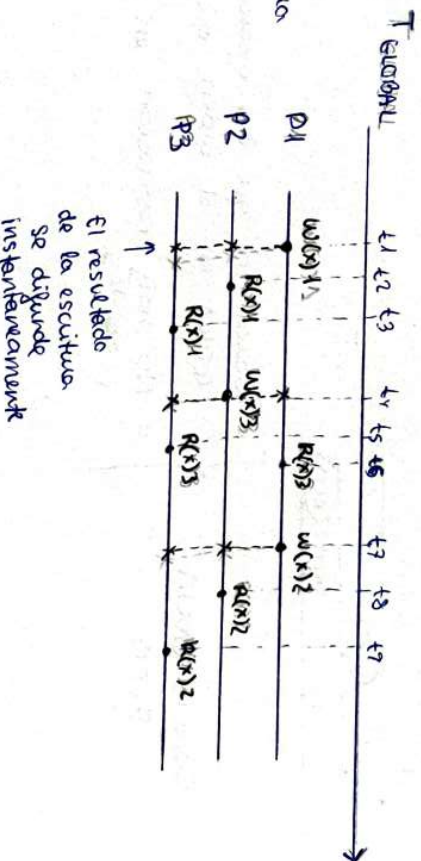 T GLOBAL
t1 t2 t3 t4 t5 t6 t7 t8 t9
P1 W(x)1 R(x)3 W(x)2
P2 R(x)1 W(x)3 R(x)2
P3 R(x)1 R(x)3 R(x)2
El resultado
de la escritura
se difunde
instantáneamente